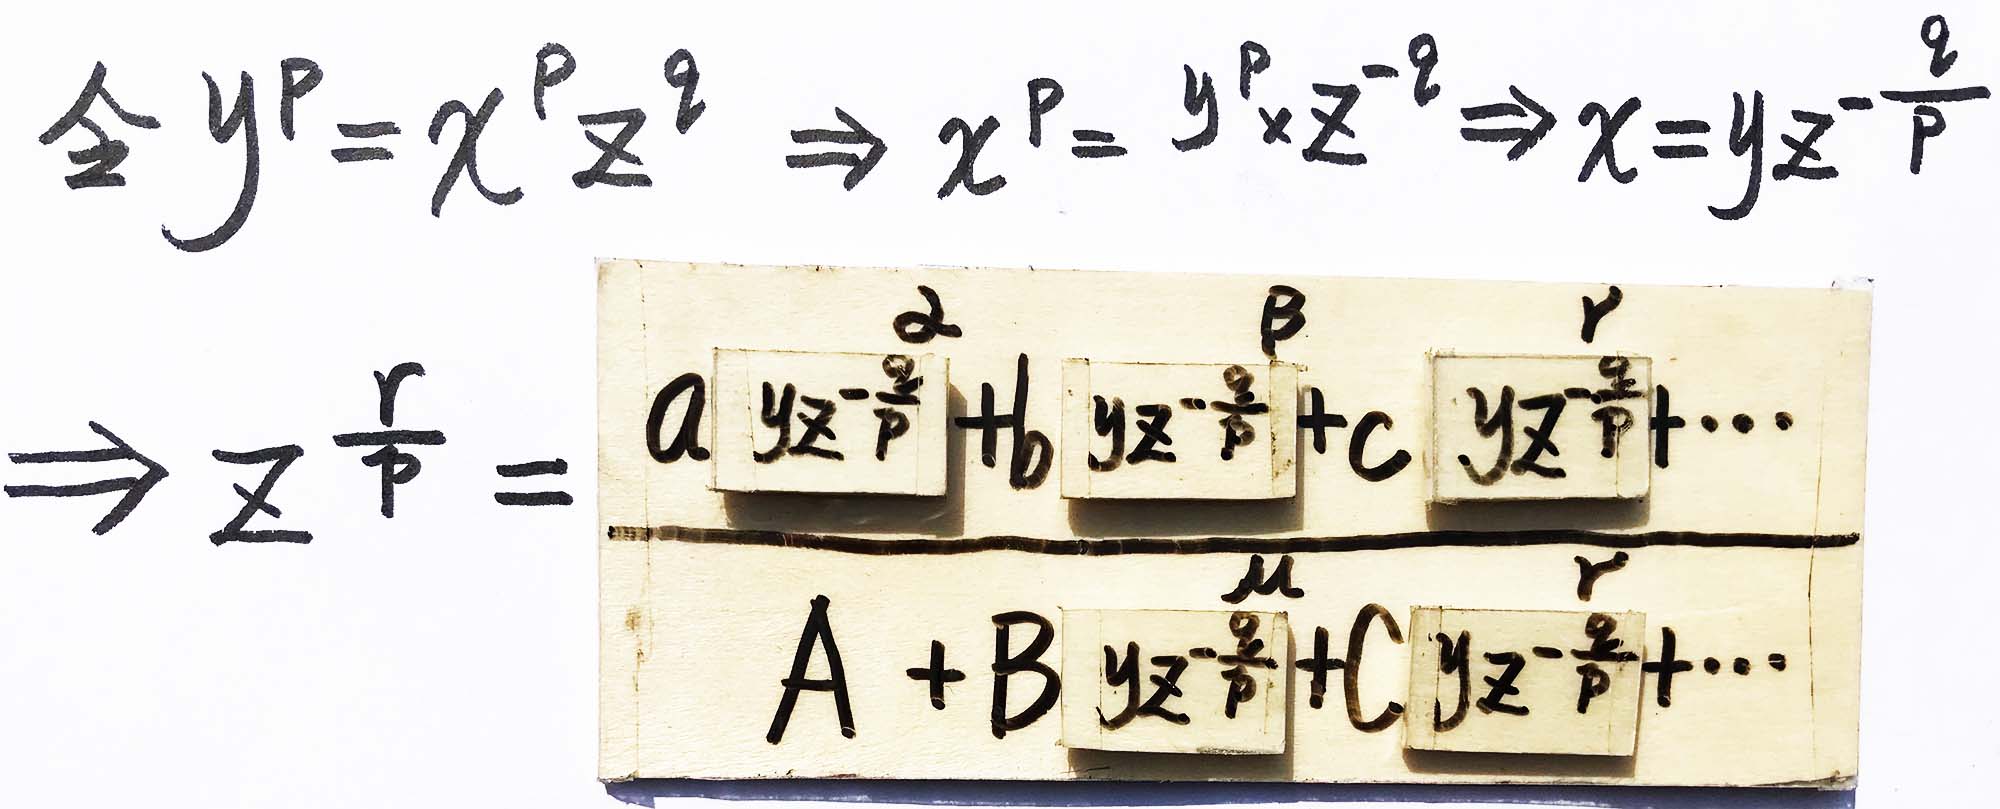 令 y^p = x^p z^q ⇒ x^p = y^p × z^{-q} ⇒ x = y z^{-q/p}
⇒ z^{r/p} = \frac{a [y z^{-q/p}]^α + b [y z^{-q/p}]^β + c [y z^{-q/p}]^γ + ⋯}{A + B [y z^{-q/p}]^μ + C [y z^{-q/p}]^γ + ⋯}